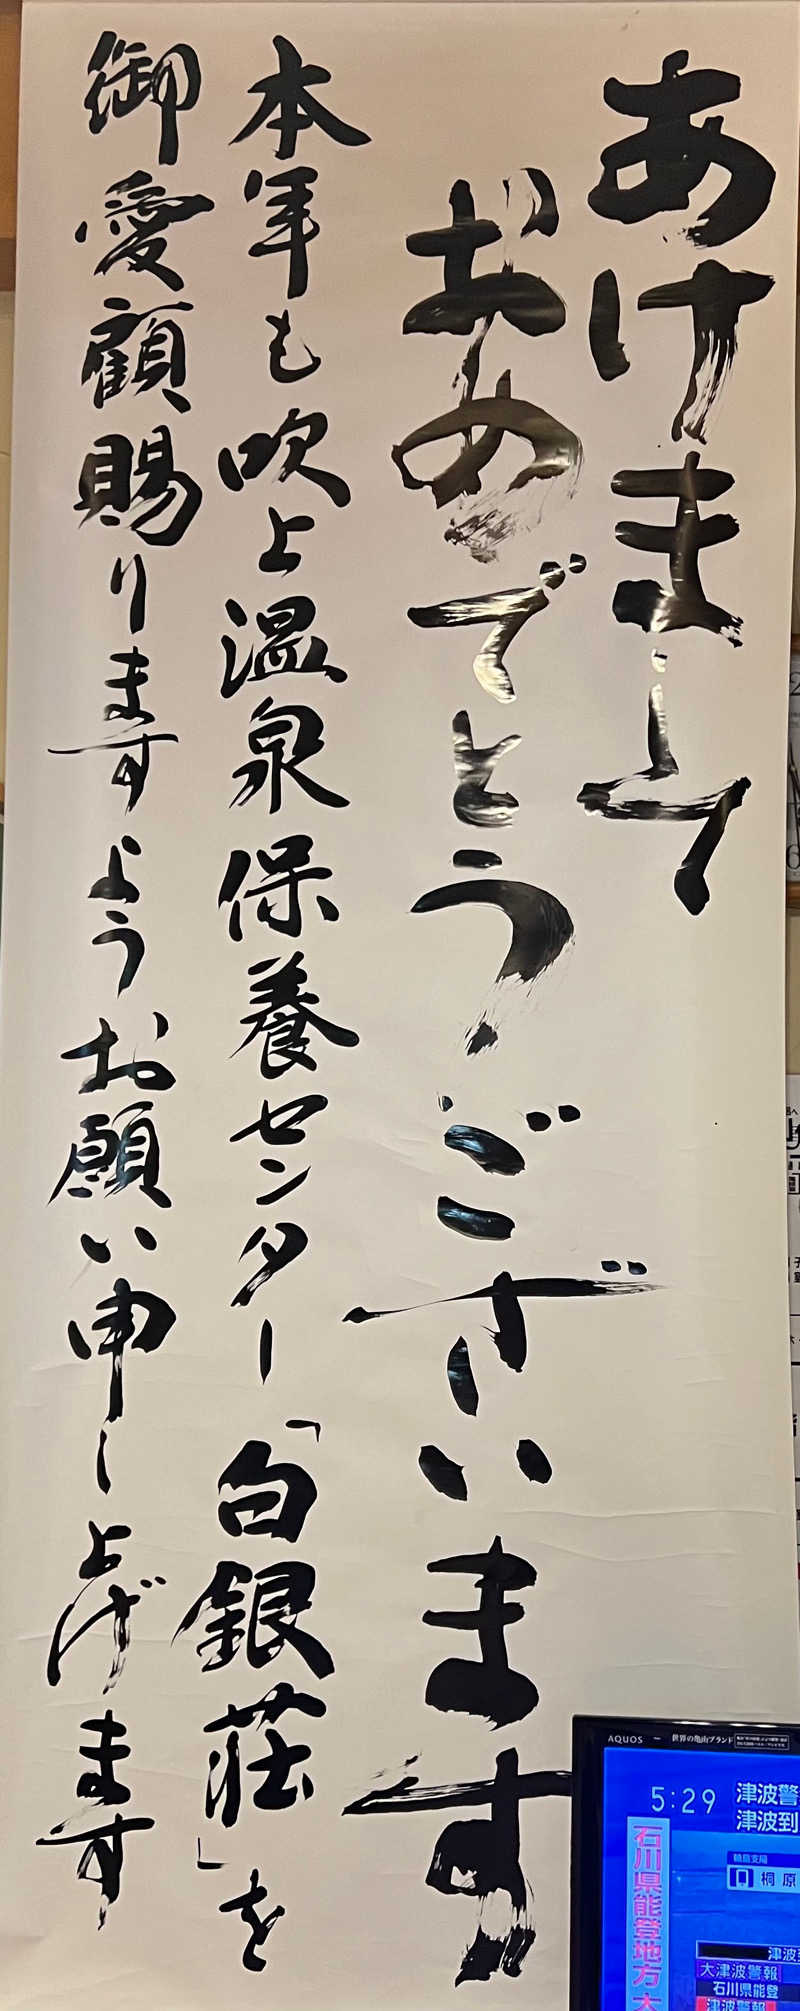 あけまして
おめでとうございます
本年も吹上温泉保養センター「白銀荘」を
御愛顧賜りますようお願い申し上げます
AQUOS
世界の亀山ブランド
5:29
津波警
津波到
石川県能登地方
輪島支局
桐原
津波
大津波警報
石川県能登
津波警報